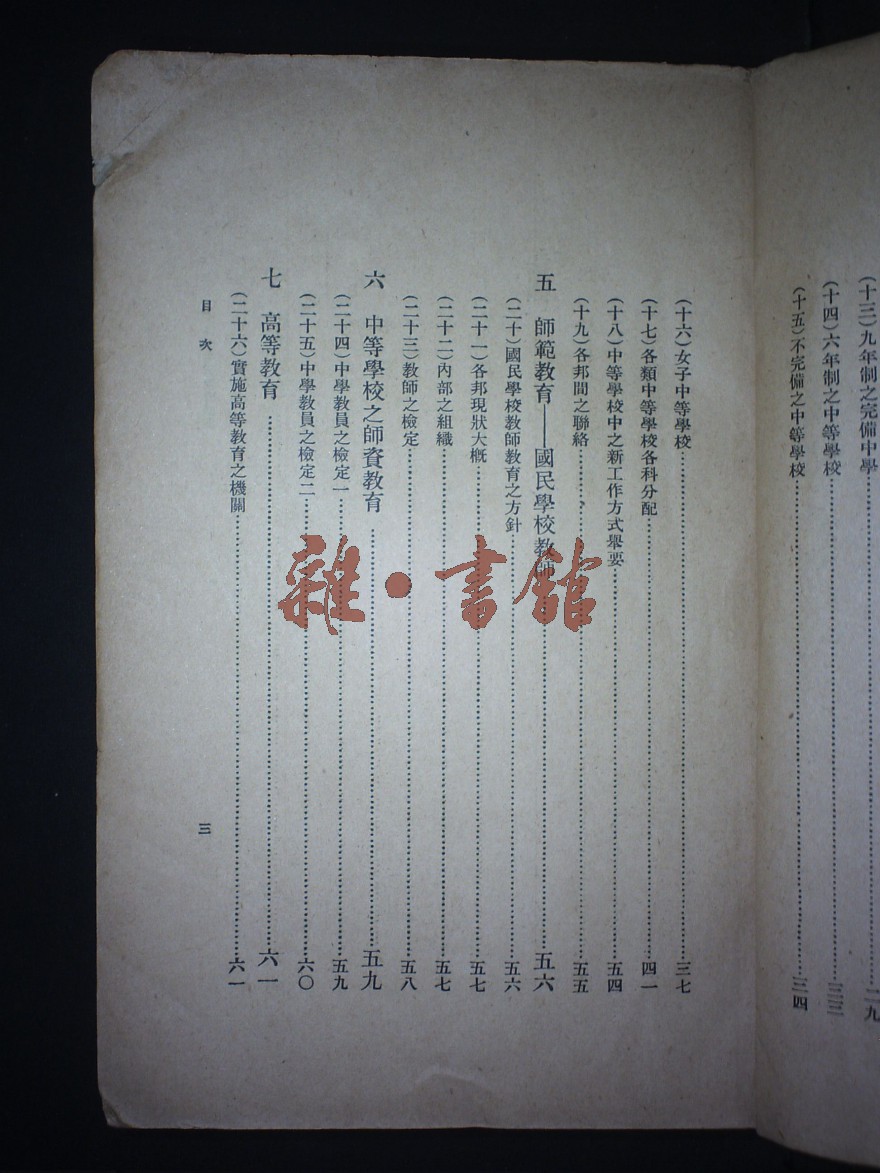 (十三)九年制之完備中學……二九
(十四)六年制之中等學校……三三
(十五)不完備之中等學校……三四
(十六)女子中等學校……三七
(十七)各類中等學校各科分配……四一
(十八)中等學校中之新工作方式舉要……五四
(十九)各邦間之聯絡……五五
五 師範教育——國民學校教師……五六
(二十)國民學校教師教育之方針……五六
(二十一)各邦現狀大概……五七
(二十二)內部之組織……五七
(二十三)教師之檢定……五八
六 中等學校之師資教育……五九
(二十四)中學教員之檢定一……五九
(二十五)中學教員之檢定二……六〇
七 高等教育……六一
(二十六)實施高等教育之機關……六一
目次 三
雜·書館